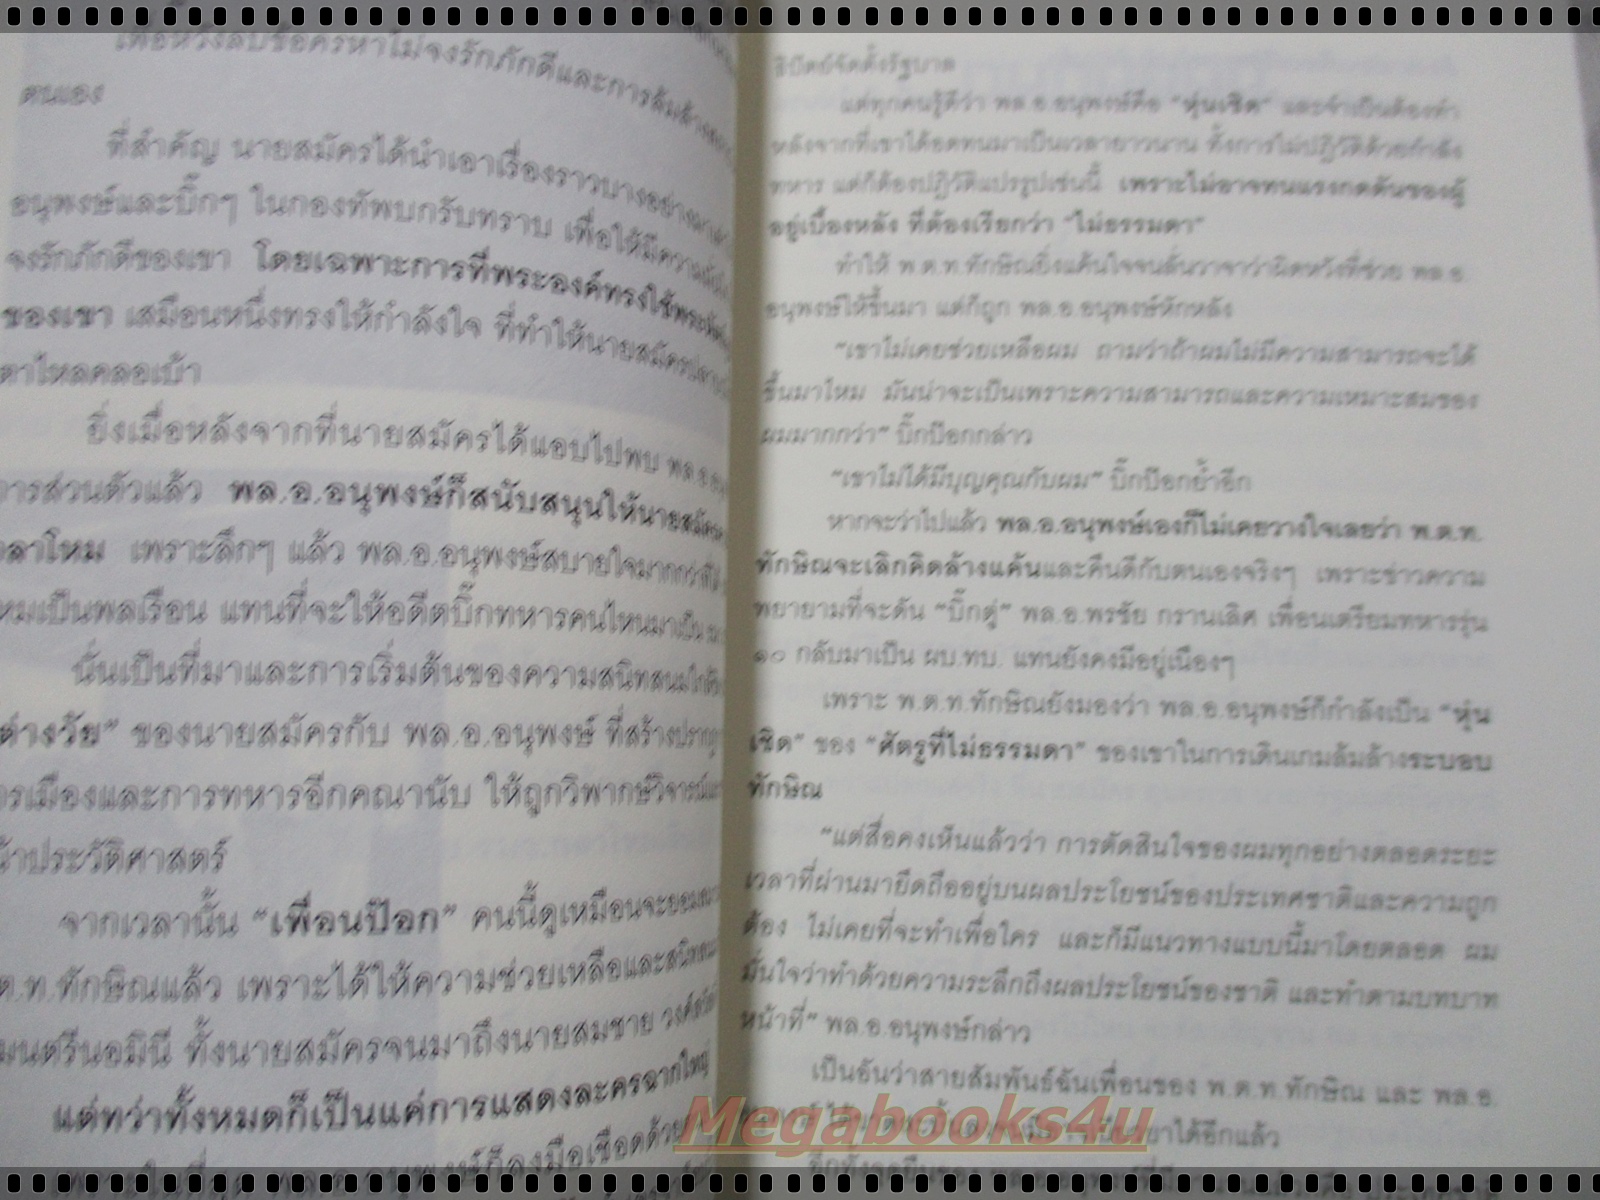 เพื่อหวังลบข้อครหาไม่จงรักภักดีและการล้มล้าง
ตนเอง
ที่สำคัญ นายสมัครได้นำเอาเรื่องราวบางอย่างมา
อนุพงษ์และบิ๊กๆ ในกองทัพบกรับทราบ เพื่อให้มีความ
จงรักภักดีของเขา โดยเฉพาะการที่พระองค์ทรงใช้พระ
ของเขา เสมือนหนึ่งทรงให้กำลังใจ ที่ทำให้นายสมัคร
ตาไหลคลอเบ้า
ยิ่งเมื่อหลังจากที่นายสมัครได้แอบไปพบ พล.อ.
การส่วนตัวแล้ว พล.อ.อนุพงษ์ก็สนับสนุนให้นายสมัคร
ลาโหม เพราะลึกๆ แล้ว พล.อ.อนุพงษ์สบายใจมากกว่าที่
หมเป็นพลเรือน แทนที่จะให้อดีตบิ๊กทหารคนไหนมาเป็น
นั่นเป็นที่มาและการเริ่มต้นของความสนิทสนม
ต่างวัย” ของนายสมัครกับ พล.อ.อนุพงษ์ ที่สร้างปรากฏ
รเมืองและการทหารอีกคณานับ ให้ถูกวิพากษ์วิจารณ์
น้าประวัติศาสตร์
จากเวลานั้น “เพื่อนป๊อก” คนนี้ดูเหมือนจะยอม
ต.ท.ทักษิณแล้ว เพราะได้ให้ความช่วยเหลือและสนิท
มนตรีนอมินี ทั้งนายสมัครจนมาถึงนายสมชาย วงศ์สวัสดิ์
แต่ทว่าทั้งหมดก็เป็นแค่การแสดงละครฉากใหญ่
เพราะในที่สุด พล.อ.อนุพงษ์ก็ลงมือเชือดด้วย
ธิปัตย์จัดตั้งรัฐบาล
แต่ทุกคนรู้ดีว่า พล.อ.อนุพงษ์คือ “หุ่นเชิด” และจำเป็นต้องทำ
หลังจากที่เขาได้อดทนมาเป็นเวลายาวนาน ทั้งการไม่ปฏิวัติด้วยกำลัง
ทหาร แต่ก็ต้องปฏิวัติแปรรูปเช่นนี้ เพราะไม่อาจทนแรงกดดันของผู้
อยู่เบื้องหลัง ที่ต้องเรียกว่า “ไม่ธรรมดา”
ทำให้ พ.ต.ท.ทักษิณยิ่งแค้นใจจนลั่นวาจาว่าผิดหวังที่ช่วย พล.อ.
อนุพงษ์ให้ขึ้นมา แต่ก็ถูก พล.อ.อนุพงษ์หักหลัง
“เขาไม่เคยช่วยเหลือผม ถามว่าถ้าผมไม่มีความสามารถจะได้
ขึ้นมาไหม มันน่าจะเป็นเพราะความสามารถและความเหมาะสมของ
ผมมากกว่า” บิ๊กป๊อกกล่าว
“เขาไม่ได้มีบุญคุณกับผม” บิ๊กป๊อกย้ำอีก
หากจะว่าไปแล้ว พล.อ.อนุพงษ์เองก็ไม่เคยวางใจเลยว่า พ.ต.ท.
ทักษิณจะเลิกคิดล้างแค้นและคืนดีกับตนเองจริงๆ เพราะข่าวความ
พยายามที่จะดัน “บิ๊กตู่” พล.อ.พรชัย กรานเลิศ เพื่อนเตรียมทหารรุ่น
๑๐ กลับมาเป็น ผบ.ทบ. แทนยังคงมีอยู่เนืองๆ
เพราะ พ.ต.ท.ทักษิณยังมองว่า พล.อ.อนุพงษ์ก็กำลังเป็น “หุ่น
เชิด” ของ “ศัตรูที่ไม่ธรรมดา” ของเขาในการเดินเกมล้มล้างระบอบ
ทักษิณ
“แต่สื่อคงเห็นแล้วว่า การตัดสินใจของผมทุกอย่างตลอดระยะ
เวลาที่ผ่านมายึดถืออยู่บนผลประโยชน์ของประเทศชาติและความถูก
ต้อง ไม่เคยที่จะทำเพื่อใคร และก็มีแนวทางแบบนี้มาโดยตลอด ผม
มั่นใจว่าทำด้วยความระลึกถึงผลประโยชน์ของชาติ และทำตามบทบาท
หน้าที่” พล.อ.อนุพงษ์กล่าว
เป็นอันว่าสายสัมพันธ์ฉันเพื่อนของ พ.ต.ท.ทักษิณ และ พล.อ.
ยาได้อีกแล้ว
Megabooks4u